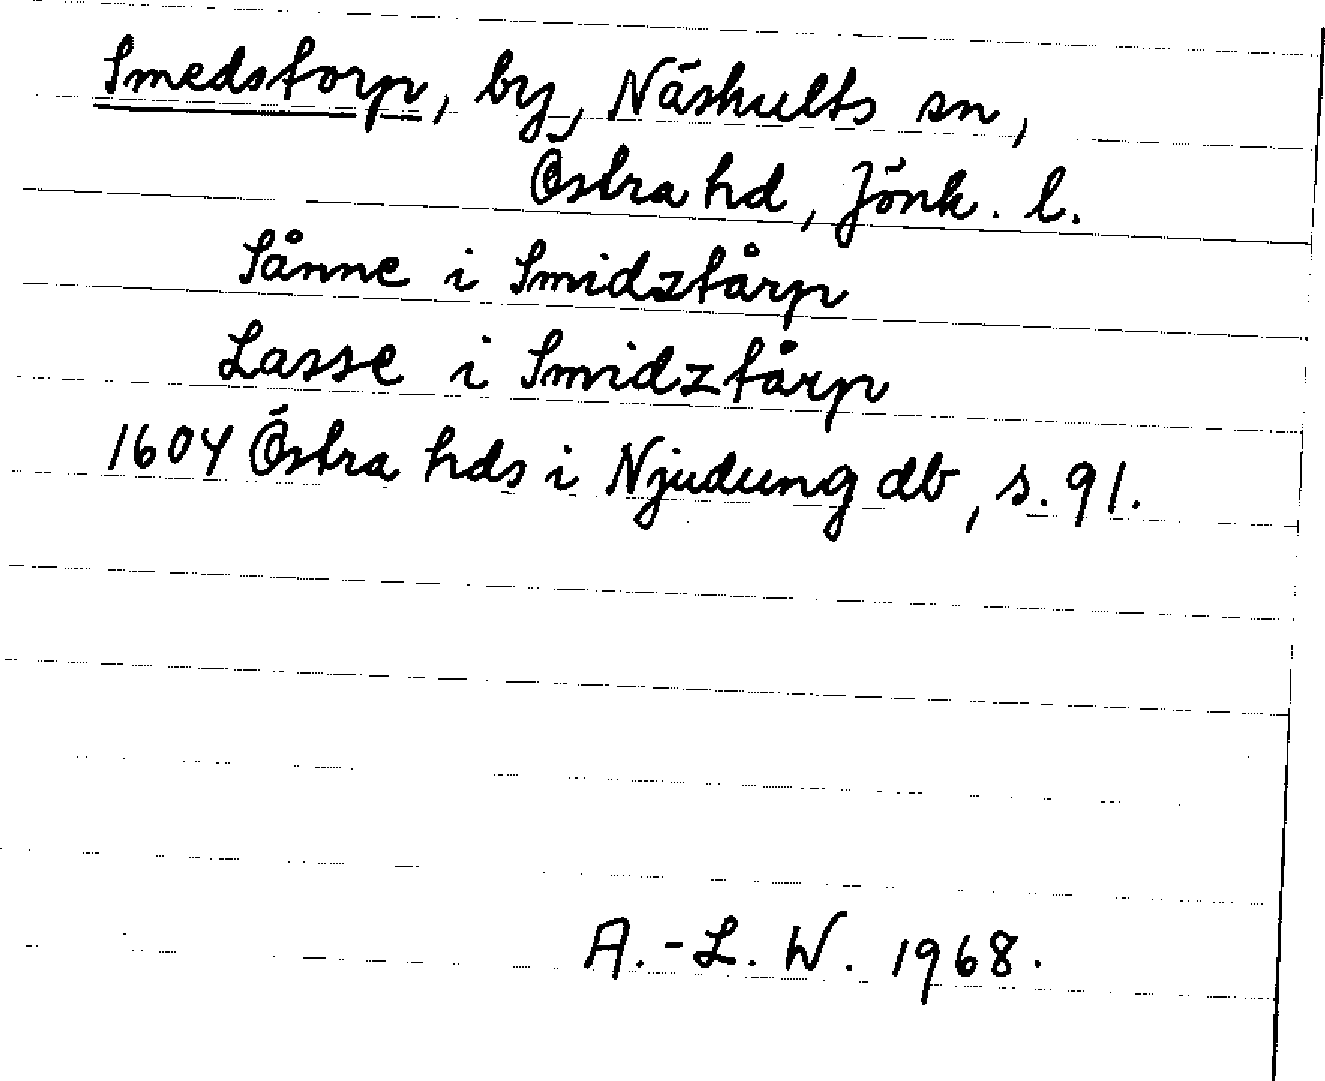 Smedstorp, by, Näshults sn,
Östra hd, Jönk. l.
Sånne i Smidztårp
Lasse i Smidztårp
1604 Östra hds i Njudung db, s. 91.
A.-L. W. 1968.